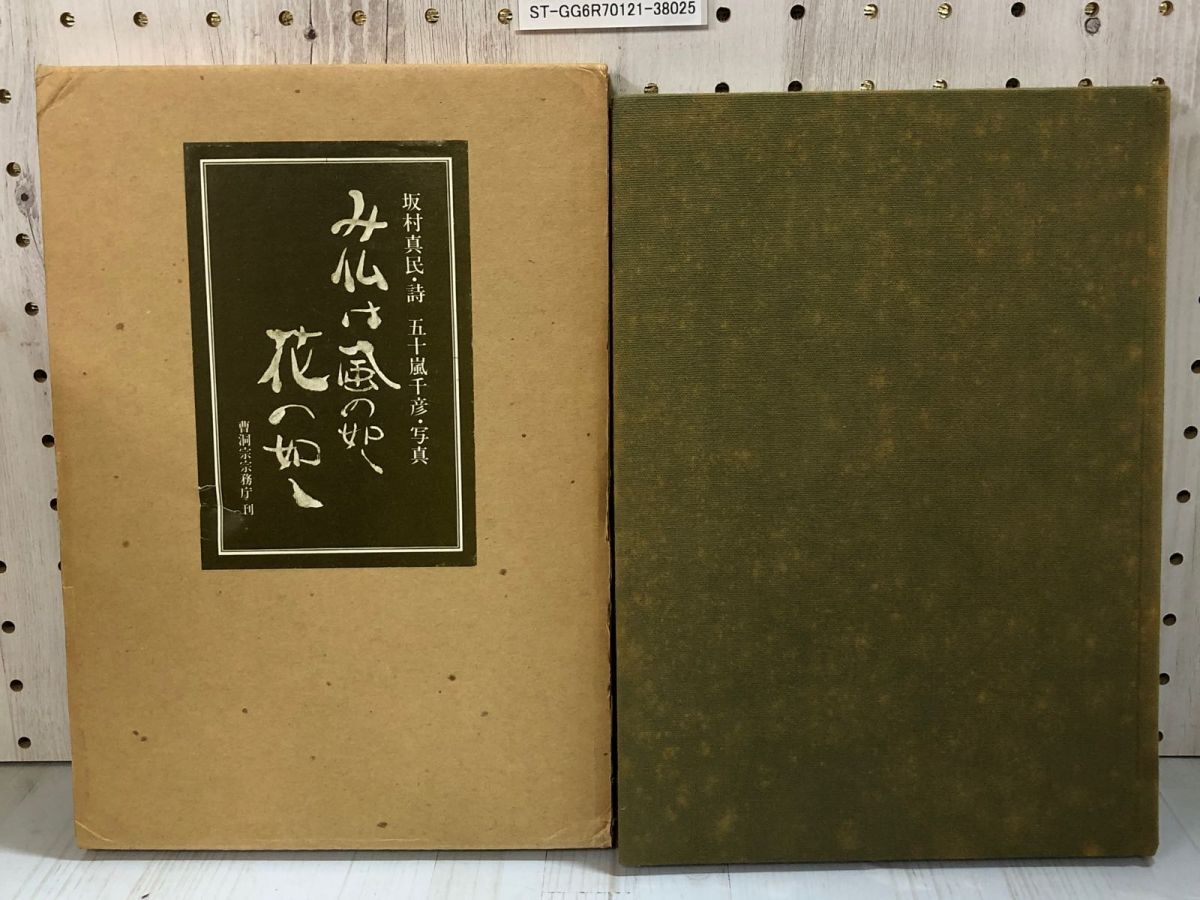 ST-GG6R70121-38025
坂村真民・詩 五十嵐千彦・写真
み仏は風の如く
花の如く
曹洞宗宗務庁・刊